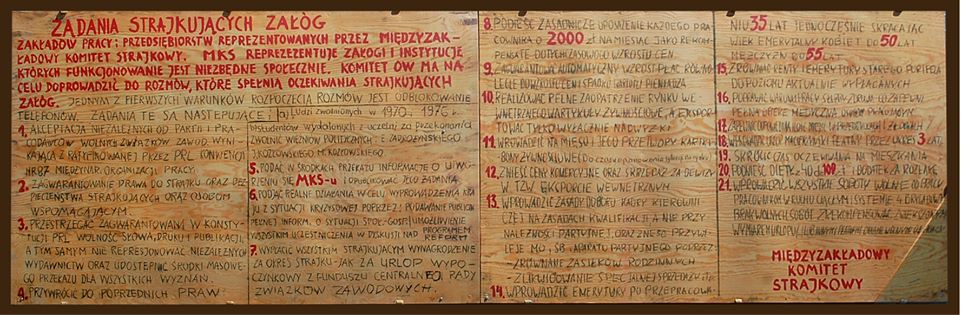 ŻĄDANIA STRAJKUJĄCYCH ZAŁÓG
ZAKŁADÓW PRACY I PRZEDSIĘBIORSTW REPREZENTOWANYCH PRZEZ MIĘDZYZAK-
ŁADOWY KOMITET STRAJKOWY. MKS REPREZENTUJE ZAŁOGI I INSTYTUCJE
KTÓRYCH FUNKCJONOWANIE JEST NIEZBĘDNE SPOŁECZNIE. KOMITET ÓW MA NA
CELU DOPROWADZIĆ DO ROZMÓW, KTÓRE SPEŁNIĄ OCZEKIWANIA STRAJKUJĄCYCH
ZAŁÓG. JEDNYM Z PIERWSZYCH WARUNKÓW ROZPOCZĘCIA ROZMÓW JEST ODBLOKOWANIE
TELEFONÓW. ŻĄDANIA TE SĄ NASTĘPUJĄCE:
1. AKCEPTACJA NIEZALEŻNYCH OD PARTII I PRA-
CODAWCÓW WOLNYCH ZWIĄZKÓW ZAWOD. WYNI-
KAJĄCA Z RATYFIKOWANEJ PRZEZ PRL KONWENCJI
NR 87 MIĘDZYNAR. ORGANIZACJI PRACY.
2. ZAGWARANTOWANIE PRAWA DO STRAJKU ORAZ BEZ-
PIECZEŃSTWA STRAJKUJĄCYCH ORAZ OSOBOM
WSPOMAGAJĄCYM.
3. PRZESTRZEGAĆ ZAGWARANTOWANĄ W KONSTY-
TUCJI PRL WOLNOŚĆ SŁOWA, DRUKU I PUBLIKACJI,
A TYM SAMYM NIE REPRESJONOWAĆ NIEZALEŻNYCH
WYDAWNICTW ORAZ UDOSTĘPNIĆ ŚRODKI MASOWE-
GO PRZEKAZU DLA WSZYSTKICH WYZNAŃ.
4. PRZYWRÓCIĆ DO POPRZEDNICH PRAW:
a) ludzi zwolnionych w 1970 i 1976
studentów wydalonych z uczelni za przekonania
ZWOLNIĆ WIĘŹNIÓW POLITYCZNYCH
J. KOZŁOWSKIEGO M. KOZŁOWSKIEGO
5. PODAĆ W ŚRODKACH PRZEKAZU INFORMACJE O UTWO-
RZENIU SIĘ MKS-u I OPUBLIKOWAĆ JEGO ŻĄDANIA
6. PODJĄĆ REALNE DZIAŁANIA W CELU WYPROWADZENIA KRA-
JU Z SYTUACJI KRYZYSOWEJ POPRZEZ: PODAWANIE PUBLICZN.
PEŁNEJ INFORM. O SYTUACJI SPOŁ-GOSP. UMOŻLIWIENIE
WSZYSTKIM UCZESTNICZENIA W DYSKUSJI NAD PROGRAMEM
REFORM
7. WYPŁACIĆ WSZYSTKIM STRAJKUJĄCYM WYNAGRODZENIE
ZA OKRES STRAJKU - JAK ZA URLOP WYPO-
CZYNKOWY Z FUNDUSZU CENTRALNEJ RADY
ZWIĄZKÓW ZAWODOWYCH.
8. PODNIEŚĆ ZASADNICZE UPOSAŻENIE KAŻDEGO PRA-
COWNIKA O 2000 zł NA MIESIĄC JAKO REKOM-
PENSATĘ DOTYCHCZASOWEGO WZROSTU CEN
9. ZAGWARANTOWAĆ AUTOMATYCZNY WZROST PŁAC RÓWNO-
LEGLE DO WZROSTU CEN I SPADKU WARTOŚCI PIENIĄDZA
10. REALIZOWAĆ PEŁNE ZAOPATRZENIE RYNKU WE-
WNĘTRZNEGO W ARTYKUŁY ŻYWNOŚCIOWE, A EKSPOR-
TOWAĆ TYLKO I WYŁĄCZNIE NADWYŻKI
11. WPROWADZIĆ NA MIĘSO I JEGO PRZETWORY KARTKI-
BONY ŻYWNOŚCIOWE (do czasu opanowania sytuacji na rynku)
12. ZNIEŚĆ CENY KOMERCYJNE ORAZ SPRZEDAŻ ZA DEWIZY
W TZW. EKSPORCIE WEWNĘTRZNYM
13. WPROWADZIĆ ZASADY DOBORU KADRY KIEROWNI-
CZEJ NA ZASADACH KWALIFIKACJI A NIE PRZY-
NALEŻNOŚCI PARTYJNEJ, ORAZ ZNIEŚĆ PRZYWI-
LEJE MO, SB I APARATU PARTYJNEGO POPRZEZ:
-ZRÓWNANIE ZASIŁKÓW RODZINNYCH
-ZLIKWIDOWANIE SPECJALNEJ SPRZEDAŻY ITP.
14. WPROWADZIĆ EMERYTURY PO PRZEPRACOWA-
NIU 35 LAT JEDNOCZEŚNIE SKRACAJĄC
WIEK EMERYTALNY KOBIET DO 50 LAT
MĘŻCZYZN DO 55 LAT
15. ZRÓWNAĆ RENTY I EMERYTURY STAREGO PORTFELA
DO POZIOMU AKTUALNIE WYPŁACANYCH
16. POPRAWIĆ WARUNKI PRACY SŁUŻBY ZDROWIA
PEŁNĄ OPIEKĘ MEDYCZNĄ
17.
18. 3 LAT.
19. SKRÓCIĆ CZAS OCZEKIWANIA NA MIESZKANIA
20. PODNIEŚĆ DIETY z 40 do 100 zł I DODATEK ZA ROZŁĄKĘ
21. WPROWADZIĆ WSZYSTKIE SOBOTY WOLNE OD PRACY.
PRACOWNIKOM W RUCHU CIĄGŁYM I SYSTEMIE 4-BRYGADOWYM
BRAK WOLNYCH SOBÓT ZREKOMPENSOWAĆ ZWIĘKSZONYM
WYMIAREM URLOPU
MIĘDZYZAKŁADOWY
KOMITET
STRAJKOWY